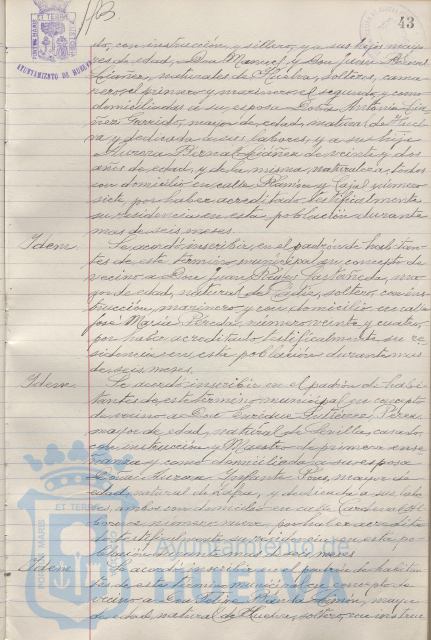 43
AYUNTAMIENTO DE HUELVA
do, con instrucción, y sillero, y a sus hijos mayo-
res de edad, Don Manuel y Don Juan Bernal
Liáñez, naturales de Huelva, solteros, cama-
rero el primero y marinero el segundo, y como
domiciliadas a su esposa Doña Antonia Liá-
ñez Garrido, mayor de edad, natural de Huel-
va y dedicada a sus labores, y a su hija
Aurora Bernal Liáñez de veinte y dos
años de edad, y de la misma naturaleza, todos
con domicilio en calle Ramón y Cajal número
siete, por haber acreditado testificalmente
su residencia en esta población durante
mas de seis meses.
Idem. Se acordó inscribir en el padrón de habitan-
tes de este término municipal en concepto de
vecino a Don Juan Castañeda, ma-
yor de edad, natural de soltero, con ins-
trucción, marinero y con domicilio en calle
José María Pereda, número veinte y cuatro,
por haber acreditado testificalmente su re-
sidencia en esta población durante mas
de seis meses.
Idem. Se acordó inscribir en el padrón de habi-
tantes de este término municipal en concepto
de vecino a Don Enrique Gutiérrez Pérez
mayor de edad, natural de Sevilla, casado
con instrucción y Maestro de primera ense-
ñanza y como domiciliada a su esposa
Aurora Infante mayor de
edad, natural de y dedicada a sus labo-
res, ambos con domicilio en calle Cardenal Al-
número nueve, por haber acredita-
do testificalmente su residencia en esta po-
blación durante mas de seis meses
Idem. Se acordó inscribir en el padrón de habitan-
tes de este término municipal en concepto de
vecino a Don Felipe Banda Limón, mayor
de edad, natural de Huelva, soltero, con instruc-
Ayuntamiento de
HUELVA